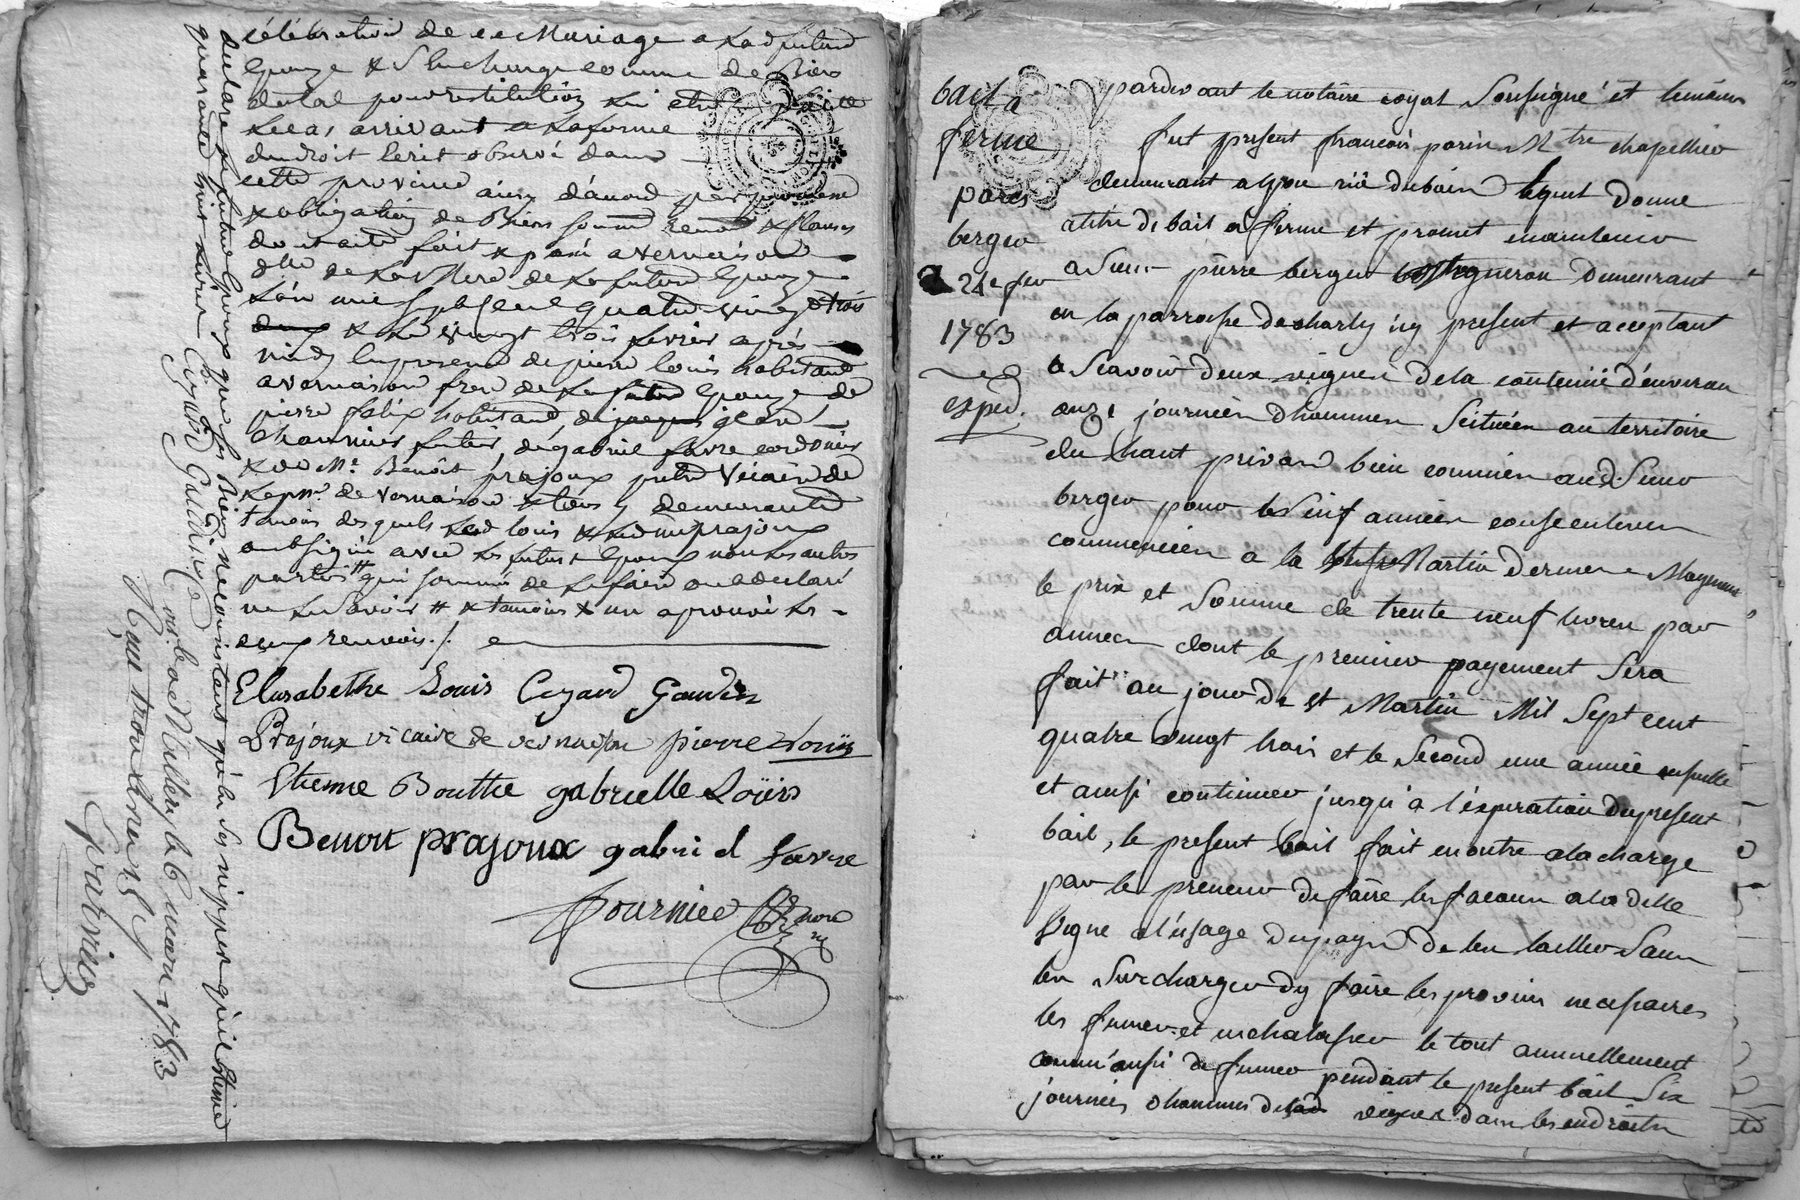 célébration de ce Mariage a lad future
Epouze & Se la charge comme de Biens
dotal pour restitution lui etre faitte
le cas arrivant a la forme
du droit Ecrit observé dans
cette province ainsy d'acord par promesse
& obligation de Biens soumis renonc & clauses
dont acte fait & passé a vernaison
de la Mere de la future Epouze
L'an mil sept cent quatre vingt trois
& le vingt trois fevrier après
midy En presence de pierre louis habitant
a vernaison frere de la future Epouze de
pierre felix habitant, de jacques
, de gabriel favre cordonier
& de Mr. Benoit prajoux pretre Vicaire de
de vernaison & tous y demeurants
temoins desquels led louis & led mre prajoux
ont signé avec les futurs Epoux non les autres
parties qui sommé de le faire ont declaré
ne le savoir # & temoins & on aprouvé les
deux renvois ./.
Elizabethe Louis Cezard Gaudin
Prajoux vicaire de vernaison pierre Louis
Etienne Bouthe gabrielle Loüis
Benoit prajoux gabriel favre
Fournier
declare la future Epouze que ses biens ne consistent qu'en ses nippes qu'il Estime
quarante huit livres Cezard Gaudin
a Millery le 6 mars 1783
Reçu trois livres
Guerrier
bail a
ferme
parin
berger
21e fev
1783
exped.
pardevant le notaire royal Soussigné et temoins
fut present francois parin Mtre chapellier
demeurant a lyon rüe dubois lequel donne
a titre de bail a ferme et promet maintenir
a Sieur pierre berger vigneron demeurant
en la parroisse de charly icy present et acceptant
a Scavoir deux vignes de la contenüe d'environ
onze journées d'hommes Scituées au territoire
du haut privard bien connües aud. Sieur
berger pour les neuf années consecutives
commencées a la St Martin derniere Moyennant
le prix et Somme de trente neuf livres par
année dont le premier payement Sera
fait au jour de St Martin Mil Sept cent
quatre vingt trois et le Second une année ensuitte
et ainsi continuer jusqu'a l'expiration du present
bail, le present bail fait en outre a la charge
par le preneur de faire les facons a la ditte
vigne a l'usage du pays de les tailler Sans
les Surcharger d'y faire les provins necessaires
les fumer et echalasser le tout annuellement
comm'ausi de fumer pendant le present bail Six
journées d'hommes desd vignes dans les endroits